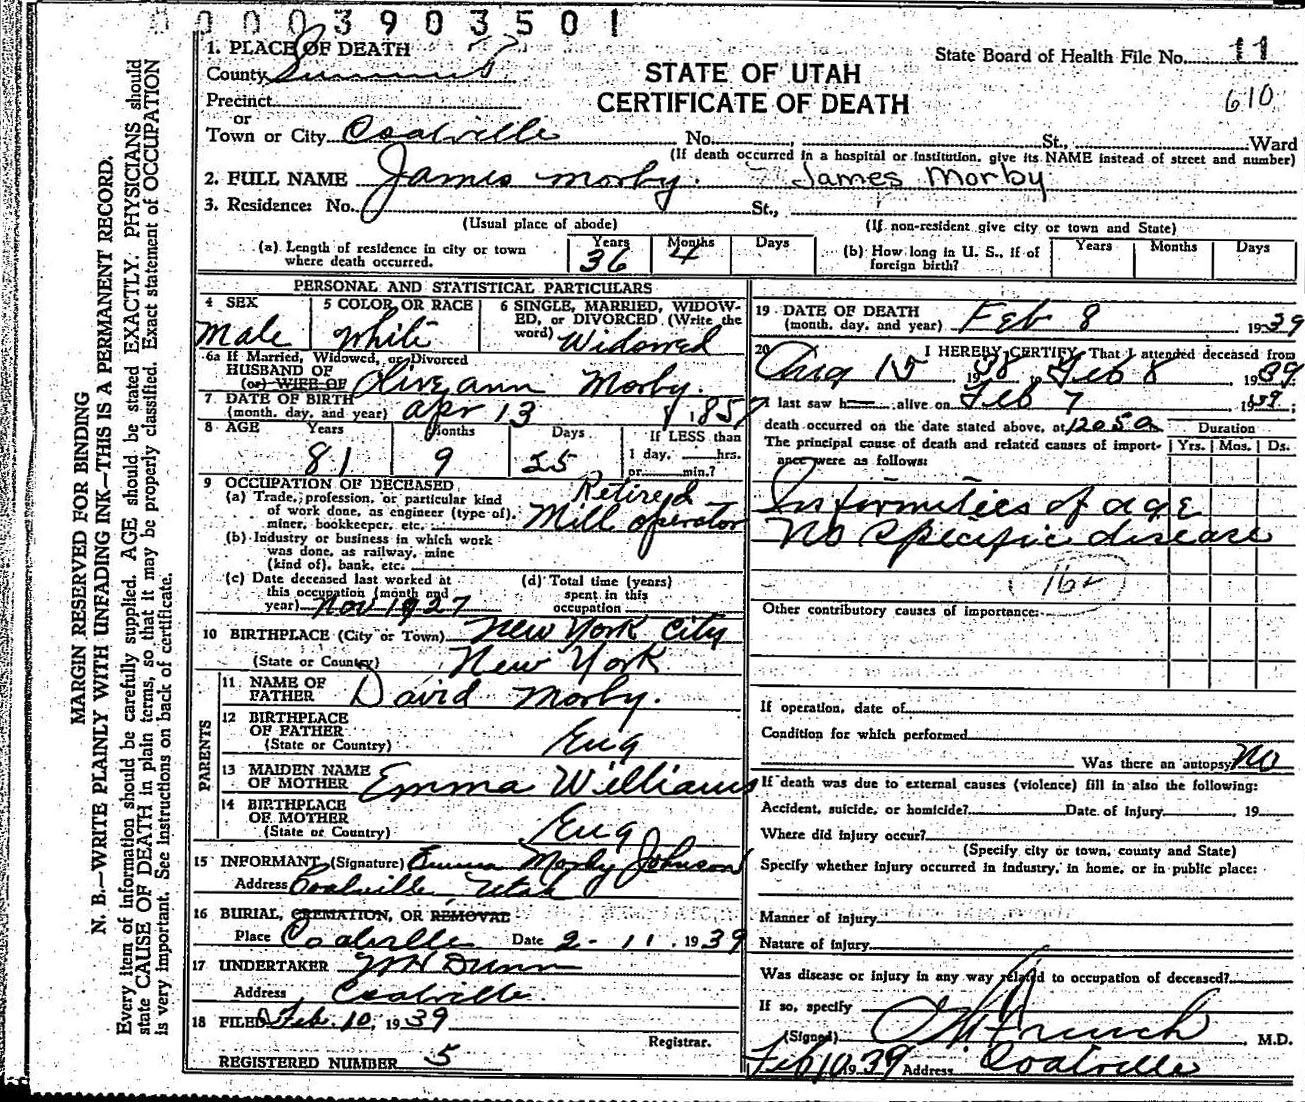 0003903501
1. PLACE OF DEATH
County Summit
State Board of Health File No. 11
STATE OF UTAH
CERTIFICATE OF DEATH
610
Precinct
or
Town or City Coalville No. St., Ward
(If death occurred in a hospital or institution, give its NAME instead of street and number)
2. FULL NAME James Morby. James Morby
3. Residence: No. St.,
(Usual place of abode) (If non-resident give city or town and State)
(a) Length of residence in city or town where death occurred. Years 36 Months 4 Days
(b) How long in U. S., if of foreign birth? Years Months Days
PERSONAL AND STATISTICAL PARTICULARS
4 SEX Male
5 COLOR OR RACE White
6 SINGLE, MARRIED, WIDOWED, or DIVORCED (Write the word) Widowed
6a If Married, Widowed, or Divorced
HUSBAND OF
(or) WIFE OF Olive ann Morby.
7 DATE OF BIRTH
(month, day, and year) Apr 13 1857
8 AGE Years 81 Months 9 Days 25 If LESS than 1 day, hrs. or min.?
9 OCCUPATION OF DECEASED
(a) Trade, profession, or particular kind of work done, as engineer (type of), miner, bookkeeper, etc. Retired Mill operator
(b) Industry or business in which work was done, as railway, mine (kind of), bank, etc.
(c) Date deceased last worked at this occupation (month and year) Nov 1927
(d) Total time (years) spent in this occupation
10 BIRTHPLACE (City or Town) New York City
(State or Country) New York
PARENTS
11 NAME OF FATHER David Morby.
12 BIRTHPLACE OF FATHER (State or Country) Eng
13 MAIDEN NAME OF MOTHER Emma Williams
14 BIRTHPLACE OF MOTHER (State or Country) Eng
15 INFORMANT (Signature) Emma Morby Johnson
Address Coalville, Utah
16 BURIAL, CREMATION, OR REMOVAL
Place Coalville Date 2-11, 1939
17 UNDERTAKER Dunn
Address Coalville
18 FILED Feb. 10, 1939
Registrar.
REGISTERED NUMBER 5
19 DATE OF DEATH
(month, day, and year) Feb 8 1939
20 I HEREBY CERTIFY, That I attended deceased from
Aug 15 1938, Feb 8 1939
I last saw h alive on Feb 7 1939;
death occurred on the date stated above, at 1205a
The principal cause of death and related causes of importance were as follows:
Duration Yrs. Mos. Ds.
Infirmities of age
No specific disease
162
Other contributory causes of importance:
If operation, date of
Condition for which performed
Was there an autopsy No
If death was due to external causes (violence) fill in also the following:
Accident, suicide, or homicide? Date of injury , 19
Where did injury occur?
(Specify city or town, county and State)
Specify whether injury occurred in industry, in home, or in public place:
Manner of injury
Nature of injury
Was disease or injury in any way related to occupation of deceased?
If so, specify
(Signed) , M.D.
Feb 10 1939 Address Coalville
MARGIN RESERVED FOR BINDING
N. B.—WRITE PLAINLY WITH UNFADING INK—THIS IS A PERMANENT RECORD.
Every item of information should be carefully supplied. AGE should be stated EXACTLY. PHYSICIANS should
state CAUSE OF DEATH in plain terms, so that it may be properly classified. Exact statement of OCCUPATION
is very important. See instructions on back of certificate.